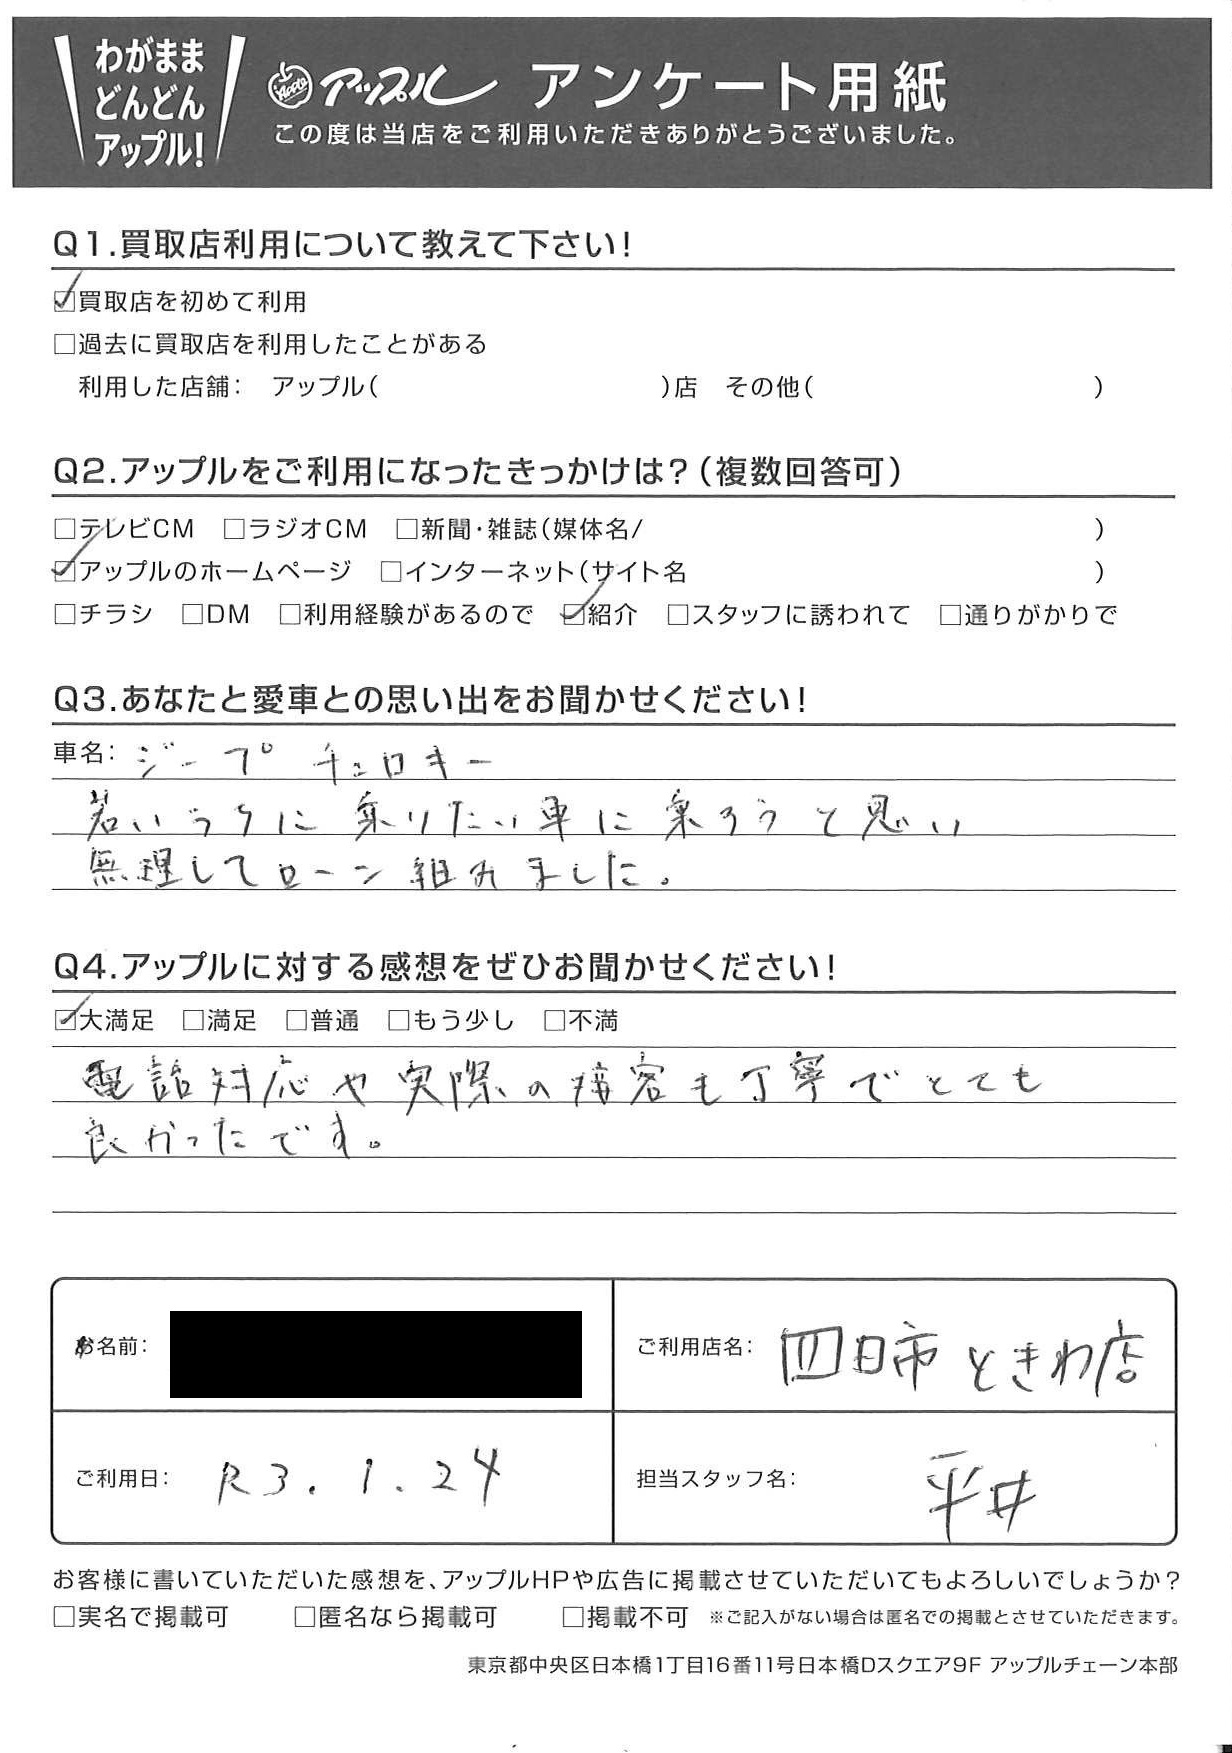 わがまま
どんどん
アップル!
Apple アップル アンケート用紙
この度は当店をご利用いただきありがとうございました。
Q1.買取店利用について教えて下さい!
☑買取店を初めて利用
□過去に買取店を利用したことがある
利用した店舗: アップル( )店 その他( )
Q2.アップルをご利用になったきっかけは?(複数回答可)
□テレビCM □ラジオCM □新聞・雑誌(媒体名/ )
☑アップルのホームページ □インターネット(サイト名 )
□チラシ □DM □利用経験があるので ☑紹介 □スタッフに誘われて □通りがかりで
Q3.あなたと愛車との思い出をお聞かせください!
車名: ジープ チェロキー
若いうちに 乗りたい車に乗ろうと思い
無理してローン組みました。
Q4.アップルに対する感想をぜひお聞かせください!
☑大満足 □満足 □普通 □もう少し □不満
電話対応や実際の接客も丁寧でとても
良かったです。
お名前:
ご利用店名: 四日市 ときわ店
ご利用日: R3.1.24
担当スタッフ名: 平井
お客様に書いていただいた感想を、アップルHPや広告に掲載させていただいてもよろしいでしょうか?
□実名で掲載可 □匿名なら掲載可 □掲載不可 ※ご記入がない場合は匿名での掲載とさせていただきます。
東京都中央区日本橋1丁目16番11号日本橋Dスクエア9F アップルチェーン本部